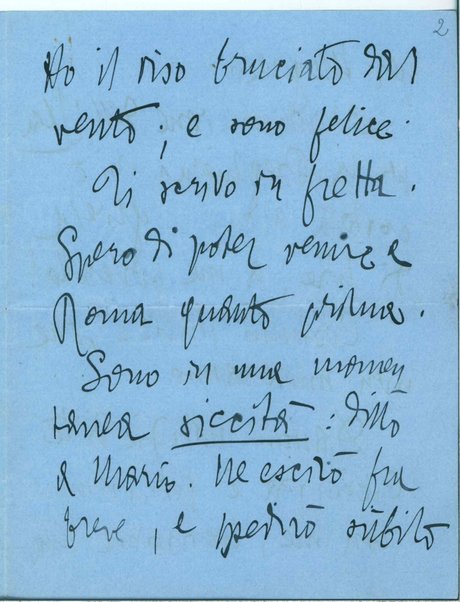 2
Ho il viso bruciato dal
vento, e sono felice.
Ti scrivo in fretta.
Spero di poter venire a
Roma quanto prima.
Sono in una momen
tanea siccità: dillo
a Mario. Ne escirò fra
breve, e spedirò subito